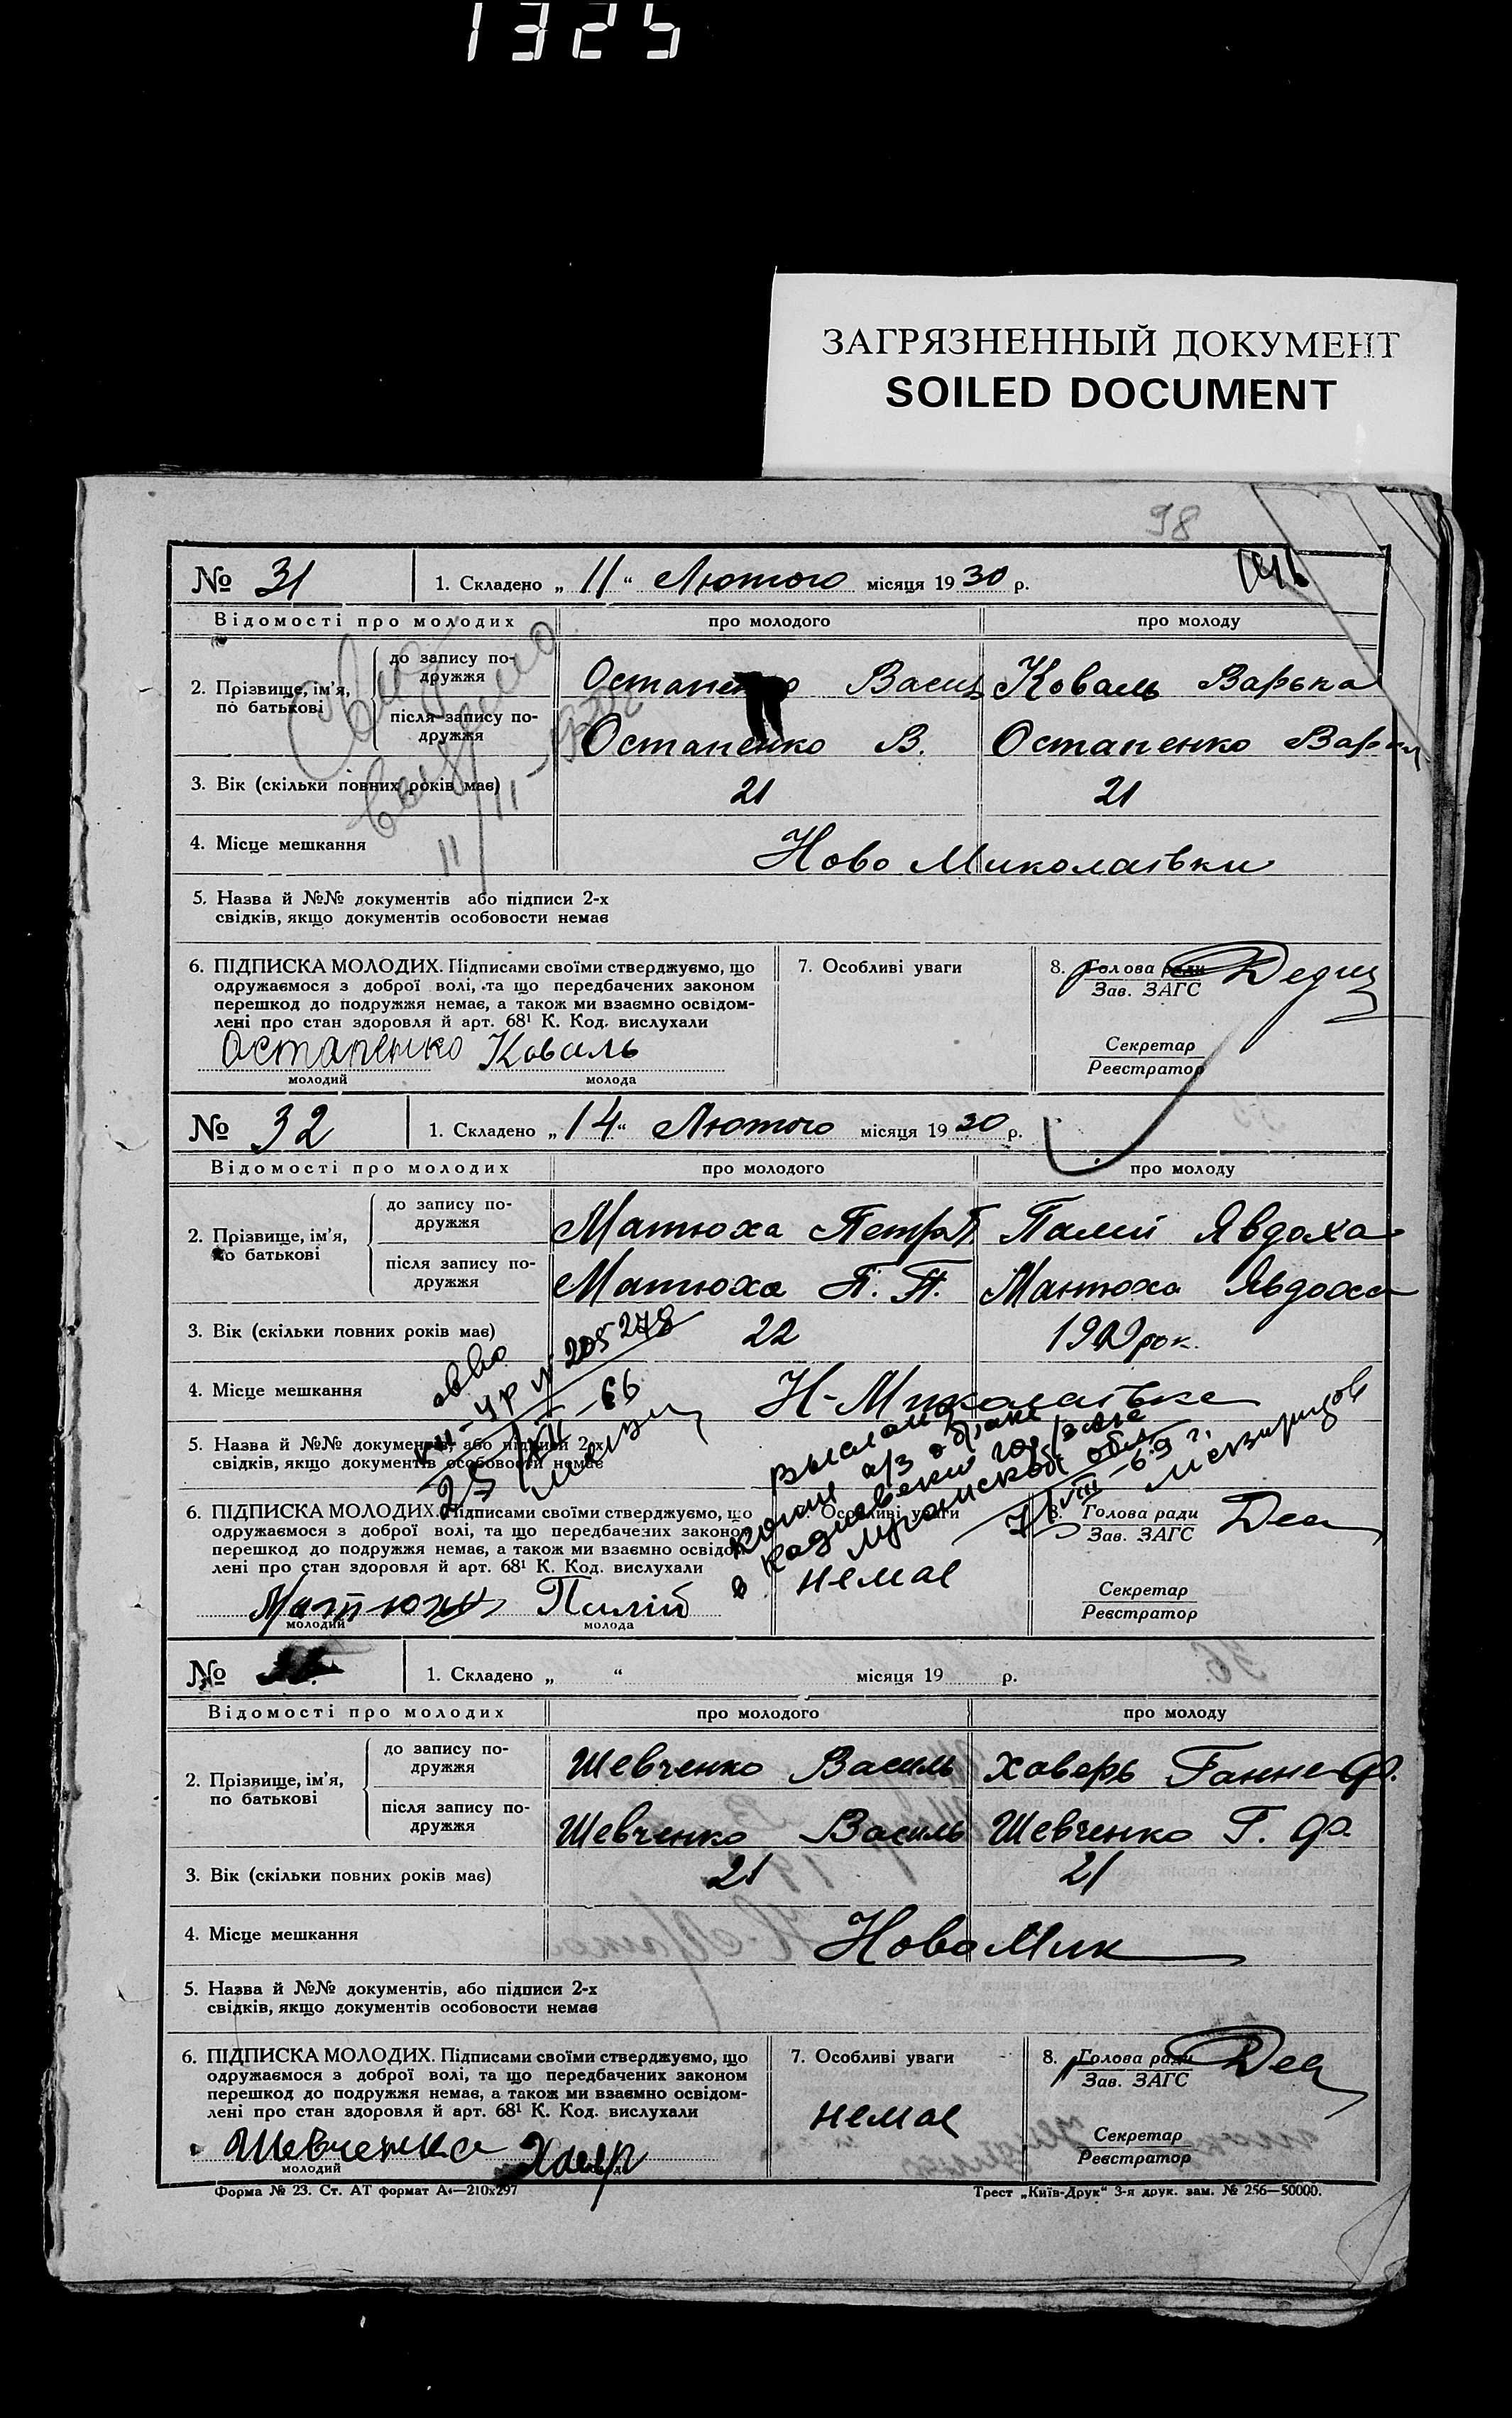 1325
ЗАГРЯЗНЕННЫЙ ДОКУМЕНТ
SOILED DOCUMENT
98
№ 31 1. Складено „ 11 “ Лютого місяця 19 30 р.
Відомості про молодих про молодого про молоду
2. Прізвище, ім'я, по батькові
до запису подружжя Остапенко Васил Коваль Варька
після запису подружжя Остапенко В. Остапенко Варка
3. Вік (скільки повних років має) 21 21
4. Місце мешкання Ново Миколаівки
5. Назва й №№ документів або підписи 2-х
свідків, якщо документів особовости немає
6. ПІДПИСКА МОЛОДИХ. Підписами своїми стверджуємо, що
одружаємося з доброї волі, та що передбачених законом
перешкод до подружжя немає, а також ми взаємно освідом-
лені про стан здоровля й арт. 68¹ К. Код. вислухали
Остапенко Коваль
молодий молода
7. Особливі уваги
8. Голова ради
Зав. ЗАГС
Секретар
Реєстратор
№ 32 1. Складено „ 14 “ Лютого місяця 19 30 р.
Відомості про молодих про молодого про молоду
2. Прізвище, ім'я, по батькові
до запису подружжя Матюха Петро П Палій Явдоха
після запису подружжя Матюха П. П. Матюха Явдоха
3. Вік (скільки повних років має) 22 1909 рок.
4. Місце мешкання Н-Миколаівка
205278
25/XII-66
5. Назва й №№ документів, або підписи 2-х
свідків, якщо документів особовости немає
выслана
копия а/з о браке
в Кадиевский гор/загс
Луганской обл
7/VIII-69 г.
6. ПІДПИСКА МОЛОДИХ. Підписами своїми стверджуємо, що
одружаємося з доброї волі, та що передбачених законом
перешкод до подружжя немає, а також ми взаємно освідом-
лені про стан здоровля й арт. 68¹ К. Код. вислухали
Матюха Палій
молодий молода
7. Особливі уваги
немає
8. Голова ради
Зав. ЗАГС
Секретар
Реєстратор
№ 1. Складено „ “ місяця 19 р.
Відомості про молодих про молодого про молоду
2. Прізвище, ім'я, по батькові
до запису подружжя Шевченко Василь Хаверь Ганна Ф.
після запису подружжя Шевченко Василь Шевченко Г. Ф.
3. Вік (скільки повних років має) 21 21
4. Місце мешкання Ново Мик
5. Назва й №№ документів, або підписи 2-х
свідків, якщо документів особовости немає
6. ПІДПИСКА МОЛОДИХ. Підписами своїми стверджуємо, що
одружаємося з доброї волі, та що передбачених законом
перешкод до подружжя немає, а також ми взаємно освідом-
лені про стан здоровля й арт. 68¹ К. Код. вислухали
Шевченко Хавер
молодий
7. Особливі уваги
немає
8. Голова ради
Зав. ЗАГС
Секретар
Реєстратор
Форма № 23. Ст. АТ формат А₄—210х297 Трест „Київ-Друк“ 3-я друк. зам. № 256—50000.